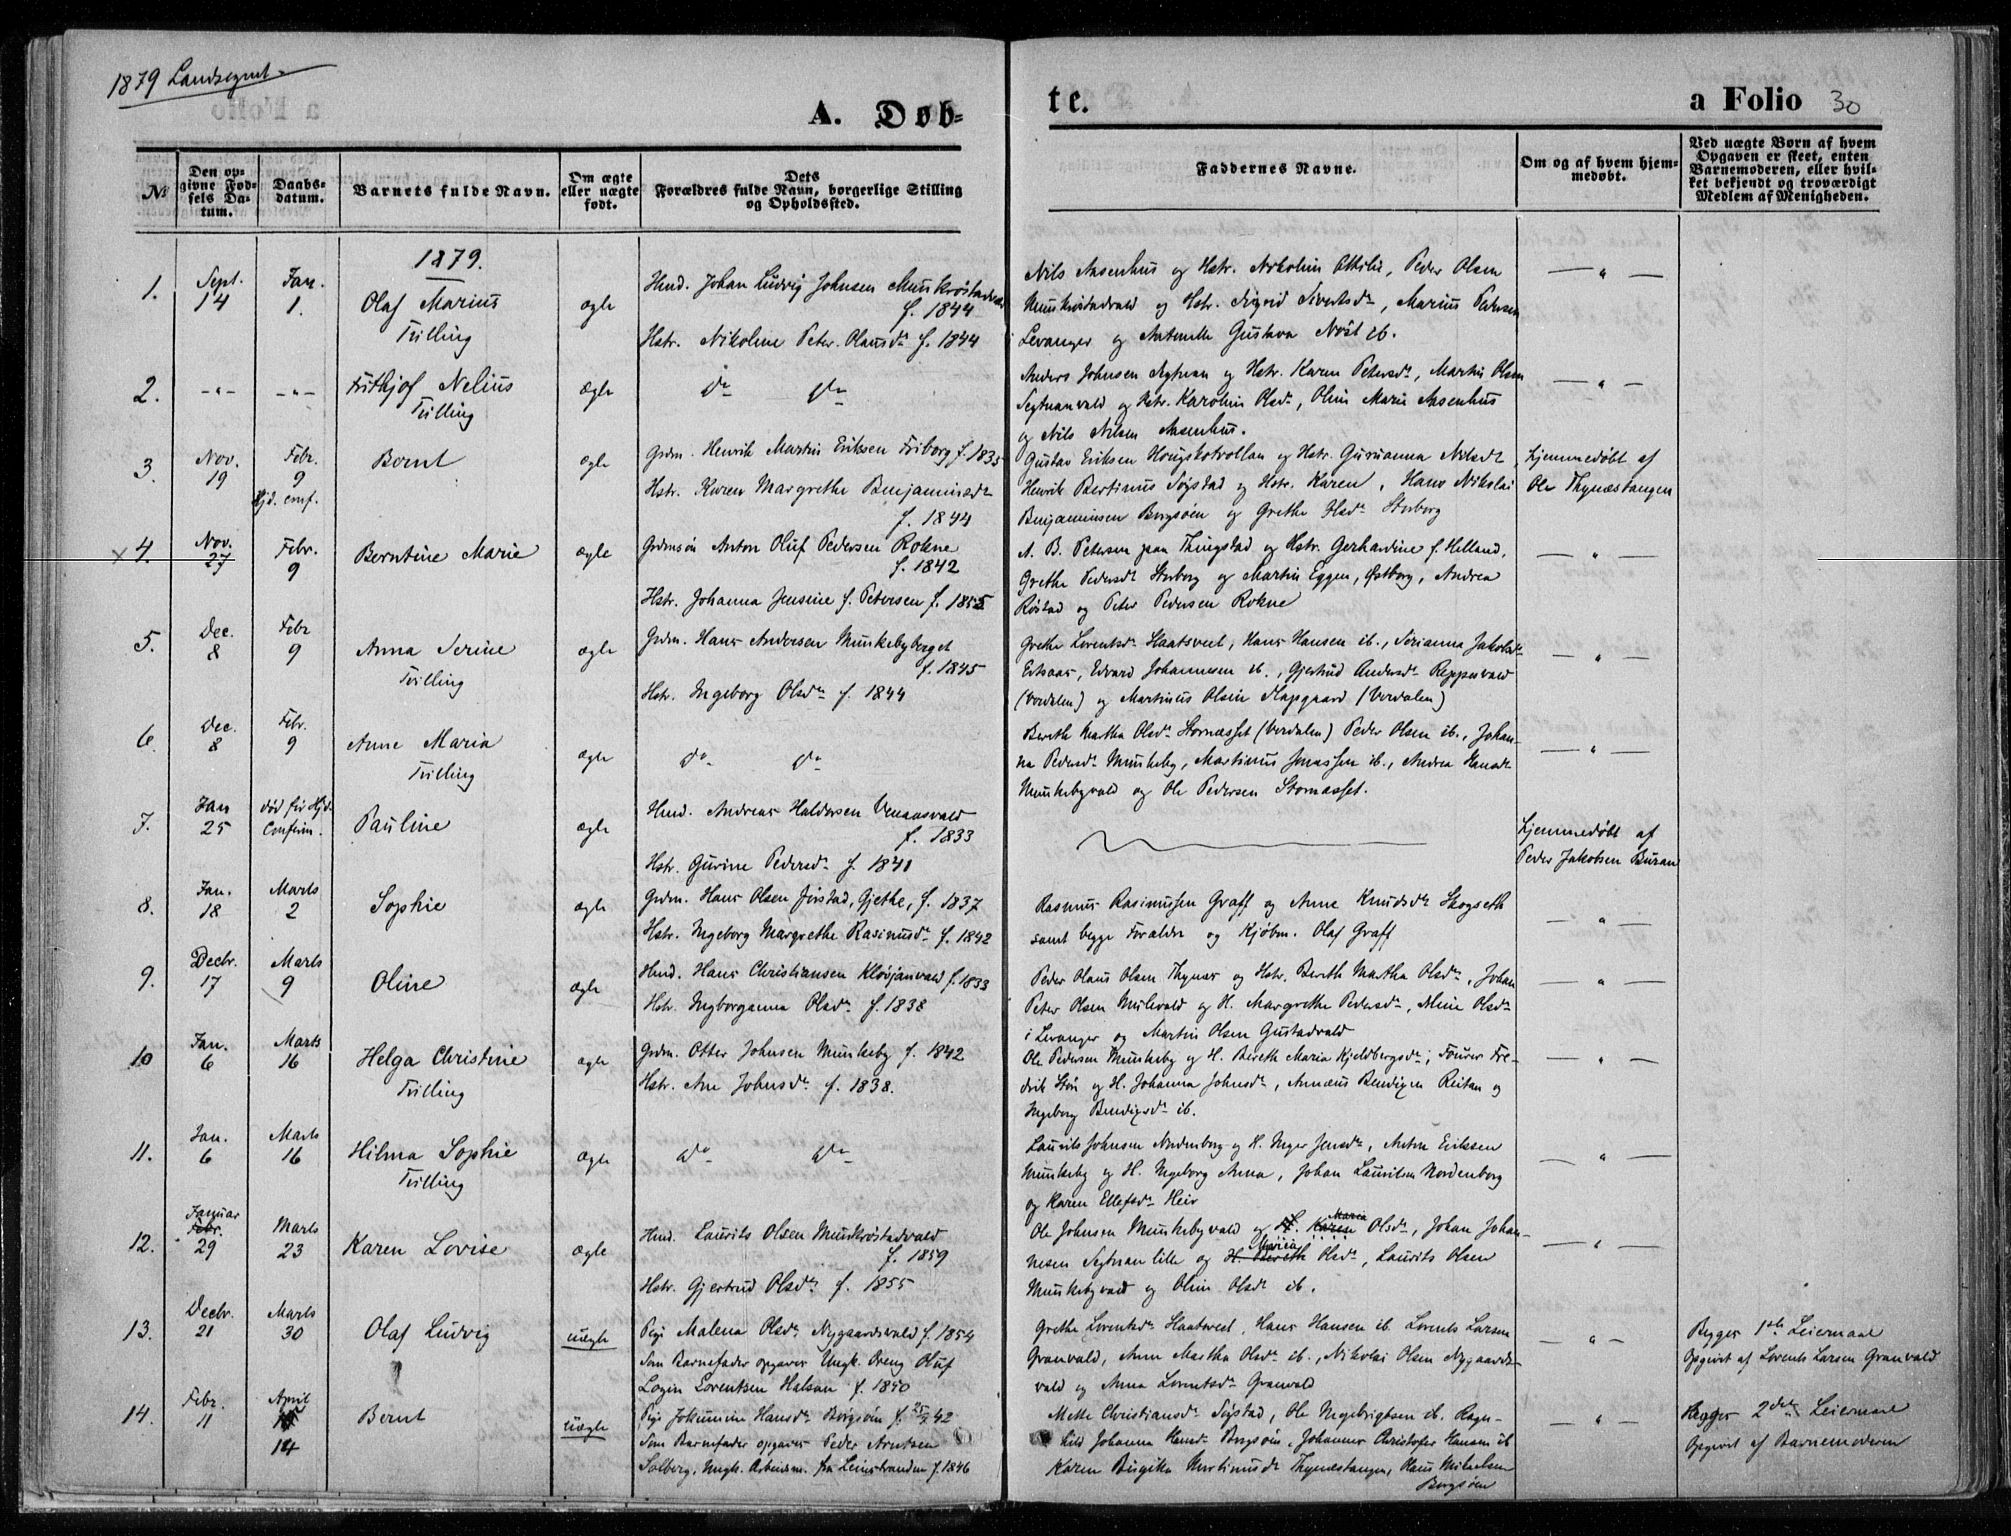 1879 Landsognet.
A. Døb-
te.
a Folio 30
№
Den op-
givne Fød-
sels Da-
tum.
Daabs-
datum.
Barnets fulde Navn.
Om ægte
eller uægte
født.
Dets
Forældres fulde Navn, borgerlige Stilling
og Opholdssted.
Faddernes Navne.
Om og af hvem hjem-
medøbt.
Ved uægte Børn af hvem
Opgaven er skeet, enten
Barnemoderen, eller hvil-
ket bekjendt og troværdigt
Medlem af Menigheden.
1879.
1.
Sept.
14
Jan.
1.
Olaf Marius
Tvilling
ægte
Hmd. Johan Ludvig Johnsen
f. 1844
Hstr. Nikoline Peter. Olausdr f. 1844
Nils Aasenhus og Hstr. Nikoline Ottilie, Peder Olsen
Munkrøstadvald og Hstr. Sigrid Sivertsdr, Marius Pedersen
Levanger og Gustava Nøst ib.
2.
-"-
-"-
Frithjof Nelius
Tvilling
ægte
do do
Anders Johnsen Segtnan og Hstr. Karen Petersdr, Martin Olsen
Segtnanvald og Hstr. Karolin Olsdr, Olin Marie Aasenhus
og Nils Nilsen Aasenhus.
— " —
3.
Nov.
19
Febr.
9
Hjd. conf.
Bernt
ægte
Grdm. Henrik Martin Eriksen Friborg f. 1835
Hstr. Karen Margrethe Benjaminsdr
f. 1844
Gustav Eriksen Hougskotvollan og Hstr. Gurianna Nilsdr,
Henrik Bertinus Søgstad og Hstr. Karen, Hans Nikolai
Benjaminsen Borgsøen og Grethe Storborg
Hjemmedøbt af
Ole Thynæstangen
x 4.
Nov.
27
Febr.
9
Berntine Marie
ægte
Grdmsøn Anton Oluf Pedersen Rokne
f. 1842
Hstr. Johanna Jensine f. Petersen f. 1855
A. B. Petersen paa Thingstad og Hstr. Gerhardine f. Helland,
Grethe Pedersdr Storborg og Martin Eggen, Østborg, Andrea
Røstad og Peter Pedersen Rokne
— " —
5.
Dec.
8
Febr
9
Anna Serine
Tvilling
ægte
Grdm. Hans Andersen Munkebyberget
f. 1845
Hstr. Ingeborg Olsdr f. 1844
Grethe Lorentsdr Haatsveet, Hans Hansen ib., Serianna Jakobsdr
Edvard Johannesen ib., Gjertrud Andersdr Reppesvald
(Verdalen) og Martinus Olsen (Verdalen)
— " —
6.
Dec.
8
Febr.
9
Anne Maria
Tvilling
ægte
do do
Bereth Martha Olsdr Stornæsset (Verdalen) Peder Olsen ib., Johan-
na Pedersdr Munkeby, Martinus Jonassen ib., Andrea Hansdr
Munkebyvald og Ole Pedersen Stornæsset.
— " —
7.
Jan
25
død før Hjd.
Confirm.
Pauline
ægte
Hmd. Andreas Haldorsen
f. 1833
Hstr. Gurine Pedersdr f. 1840
Hjemmedøbt af
Peder Jakobsen Buran
8.
Jan.
18
Marts
2
Sophie
ægte
Grdm. Hans Olsen Jørstad, Gjethe, f. 1837
Hstr. Ingeborg Margrethe Rasmusdr f. 1842
Rasmus Rasmussen Graff og Anne Knudsdr Skogseth
samt begge Forældre og Kjøbm. Olaf Graff
— " —
9.
Decbr.
17
Marts
9
Oline
ægte
Hmd. Hans Christiansen Kløvjanvald f. 1833
Hstr. Ingborganna Olsdr f. 1838
Peder Olaus Olsen Thynæs og Hstr. Bereth Martha Olsdr, Johan
Peter Olsen Mulevald og H. Margrethe Pedersdr, Oline Olsdr
i Levanger og Martin Olsen Gustadvald
— " —
10
Jan.
6
Marts
16
Helga Christine
Tvilling
ægte
Grdm. Otter Johnsen Munkeby f. 1842
Hstr. Ane Johnsdr f. 1838.
Ole Pedersen Munkeby og H. Bereth Maria Kjeldbergsdr, Fourer Fre-
drik Støn og H. Johanna Johnsdr, Annæus Bendixen Reitan og
Ingeborg Bendixsdr ib.
— " —
11.
Jan.
6
Marts
16
Hilma Sophie
Tvilling
ægte
do do
Laurits Johnsen Nordenborg og H. Inger Jensdr, Anton Eriksen
Munkeby og H. Ingeborg Anna, Johan Lauritsen Nordenborg
og Karen Ellefsdr Heir
— " —
12.
Januar
Febr.
29
Marts
23
Karen Lovise
ægte
Hmd. Laurits Olsen Munkrøstadvald
f. 1859
Hstr. Gjertrud Olsdr f. 1855
Maria
Ole Johnsen Munkebyvald og H. Karen Olsdr, Johan Johan-
Maria
nesen Segtnan lille og H. Bereth Olsdr, Laurits Olsen
Munkebyvald og Olin Olsdr ib.
— " —
13.
Decbr.
21
Marts
30
Olaf Ludvig
uægte
Pige Malena Olsdr Nygaardsvald f. 1854
Som Barnefader opgaves Ungk. Dreng Oluf
Lorentsen Halsan f. 1850
Grethe Lorentsdr Haatsveet, Hans Hansen ib. Lorents Larsen
Granvald, Anne Martha Olsdr ib., Nikolai Olsen Nygaards-
vald og Anna Lorentsdr Granvald
— " —
Begges 1ste Leiermaal
Opgivet af Lorents Larsen Granvald
14.
Febr.
11
April
14
Bernt
uægte
Pige Jokumine Hansdr Borgsøen f. 25/2 42
Som Barnefader opgaves Peder Arntsen
Solberg, Ungk. Arbeidsm. fra Leinstranden f. 1846
Mette Christiansdr Søgstad, Ole Ingebrigtsen ib. Ragn-
hild Johanna Hansdr Borgsøen, Johannes Christofer Hansen ib
Karen Birgitta Martinusdr Thynæstangen, Hans Mikalsen
Borgsøen
— " —
Begges 2det Leiermaal
Opgivet af Barnemoderen